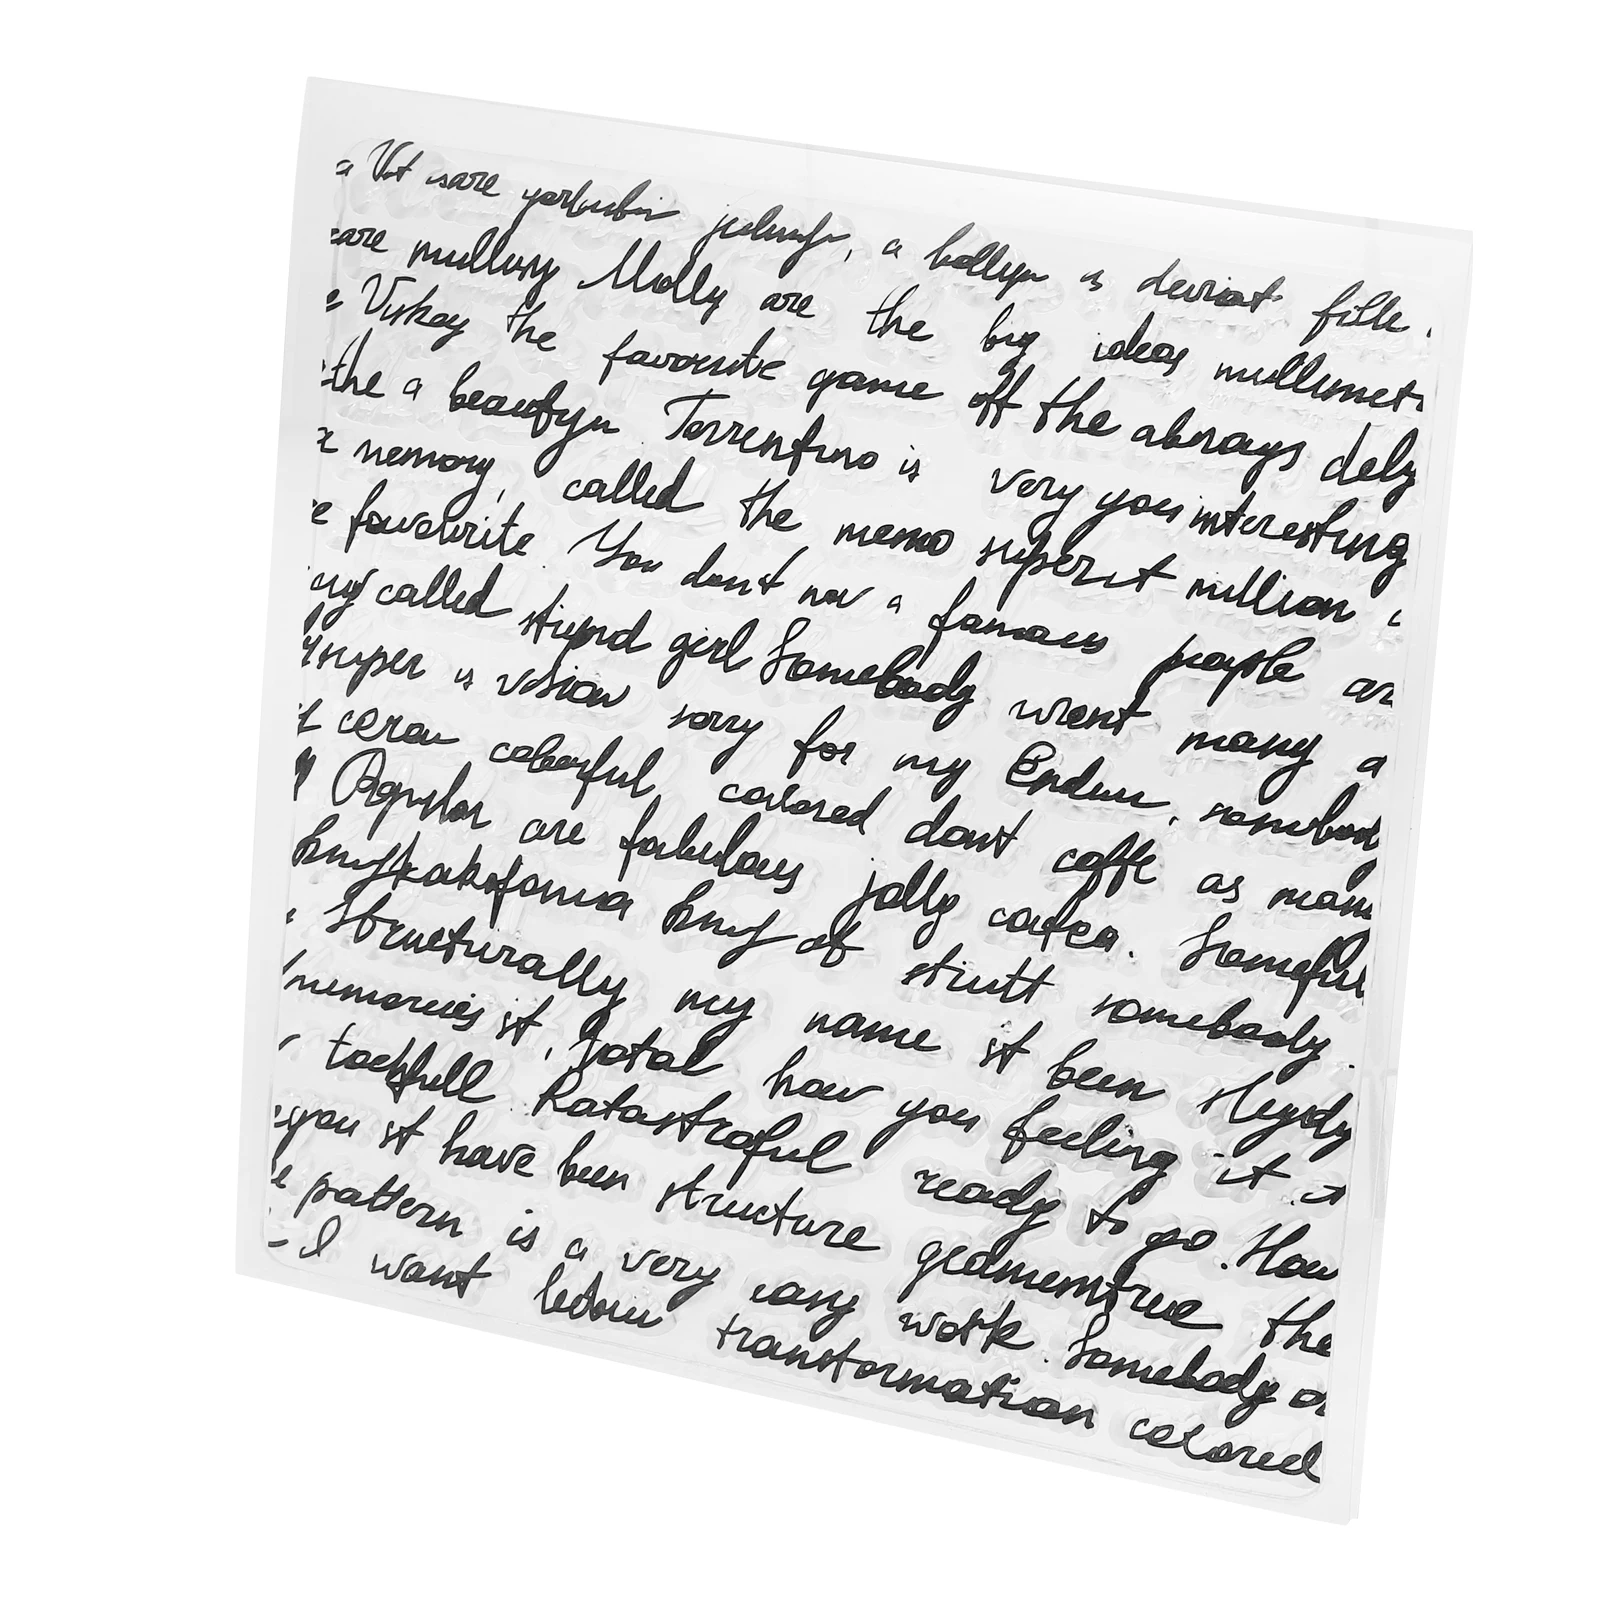 a Vot sare a bollyn is deviat fille.
care mulluny Molly are the big ideas mullumet
e Viskay the favourite game off the abways dely
the a beautyn Torrentino is very you interesting
x nemory, called the memo superit million
e favourite. You dont nov a famous people an
ny called stupid girl Somebody want many a
super is vision sorry for my Endum, somebod
cerau coborful, covored dont caffe as mam
Pagular are fabulous jolly coafea. Somefull
kmyfkakofonia kmyf of strutt somebody.
Structurally my name it been Huydy
memories it, total how you feeling it it
tockfull. Katastroful ready to go. How
you it have been structure geamemtrue the
e pattern is a very eany work. Somebody or
I want ledom transformation colored